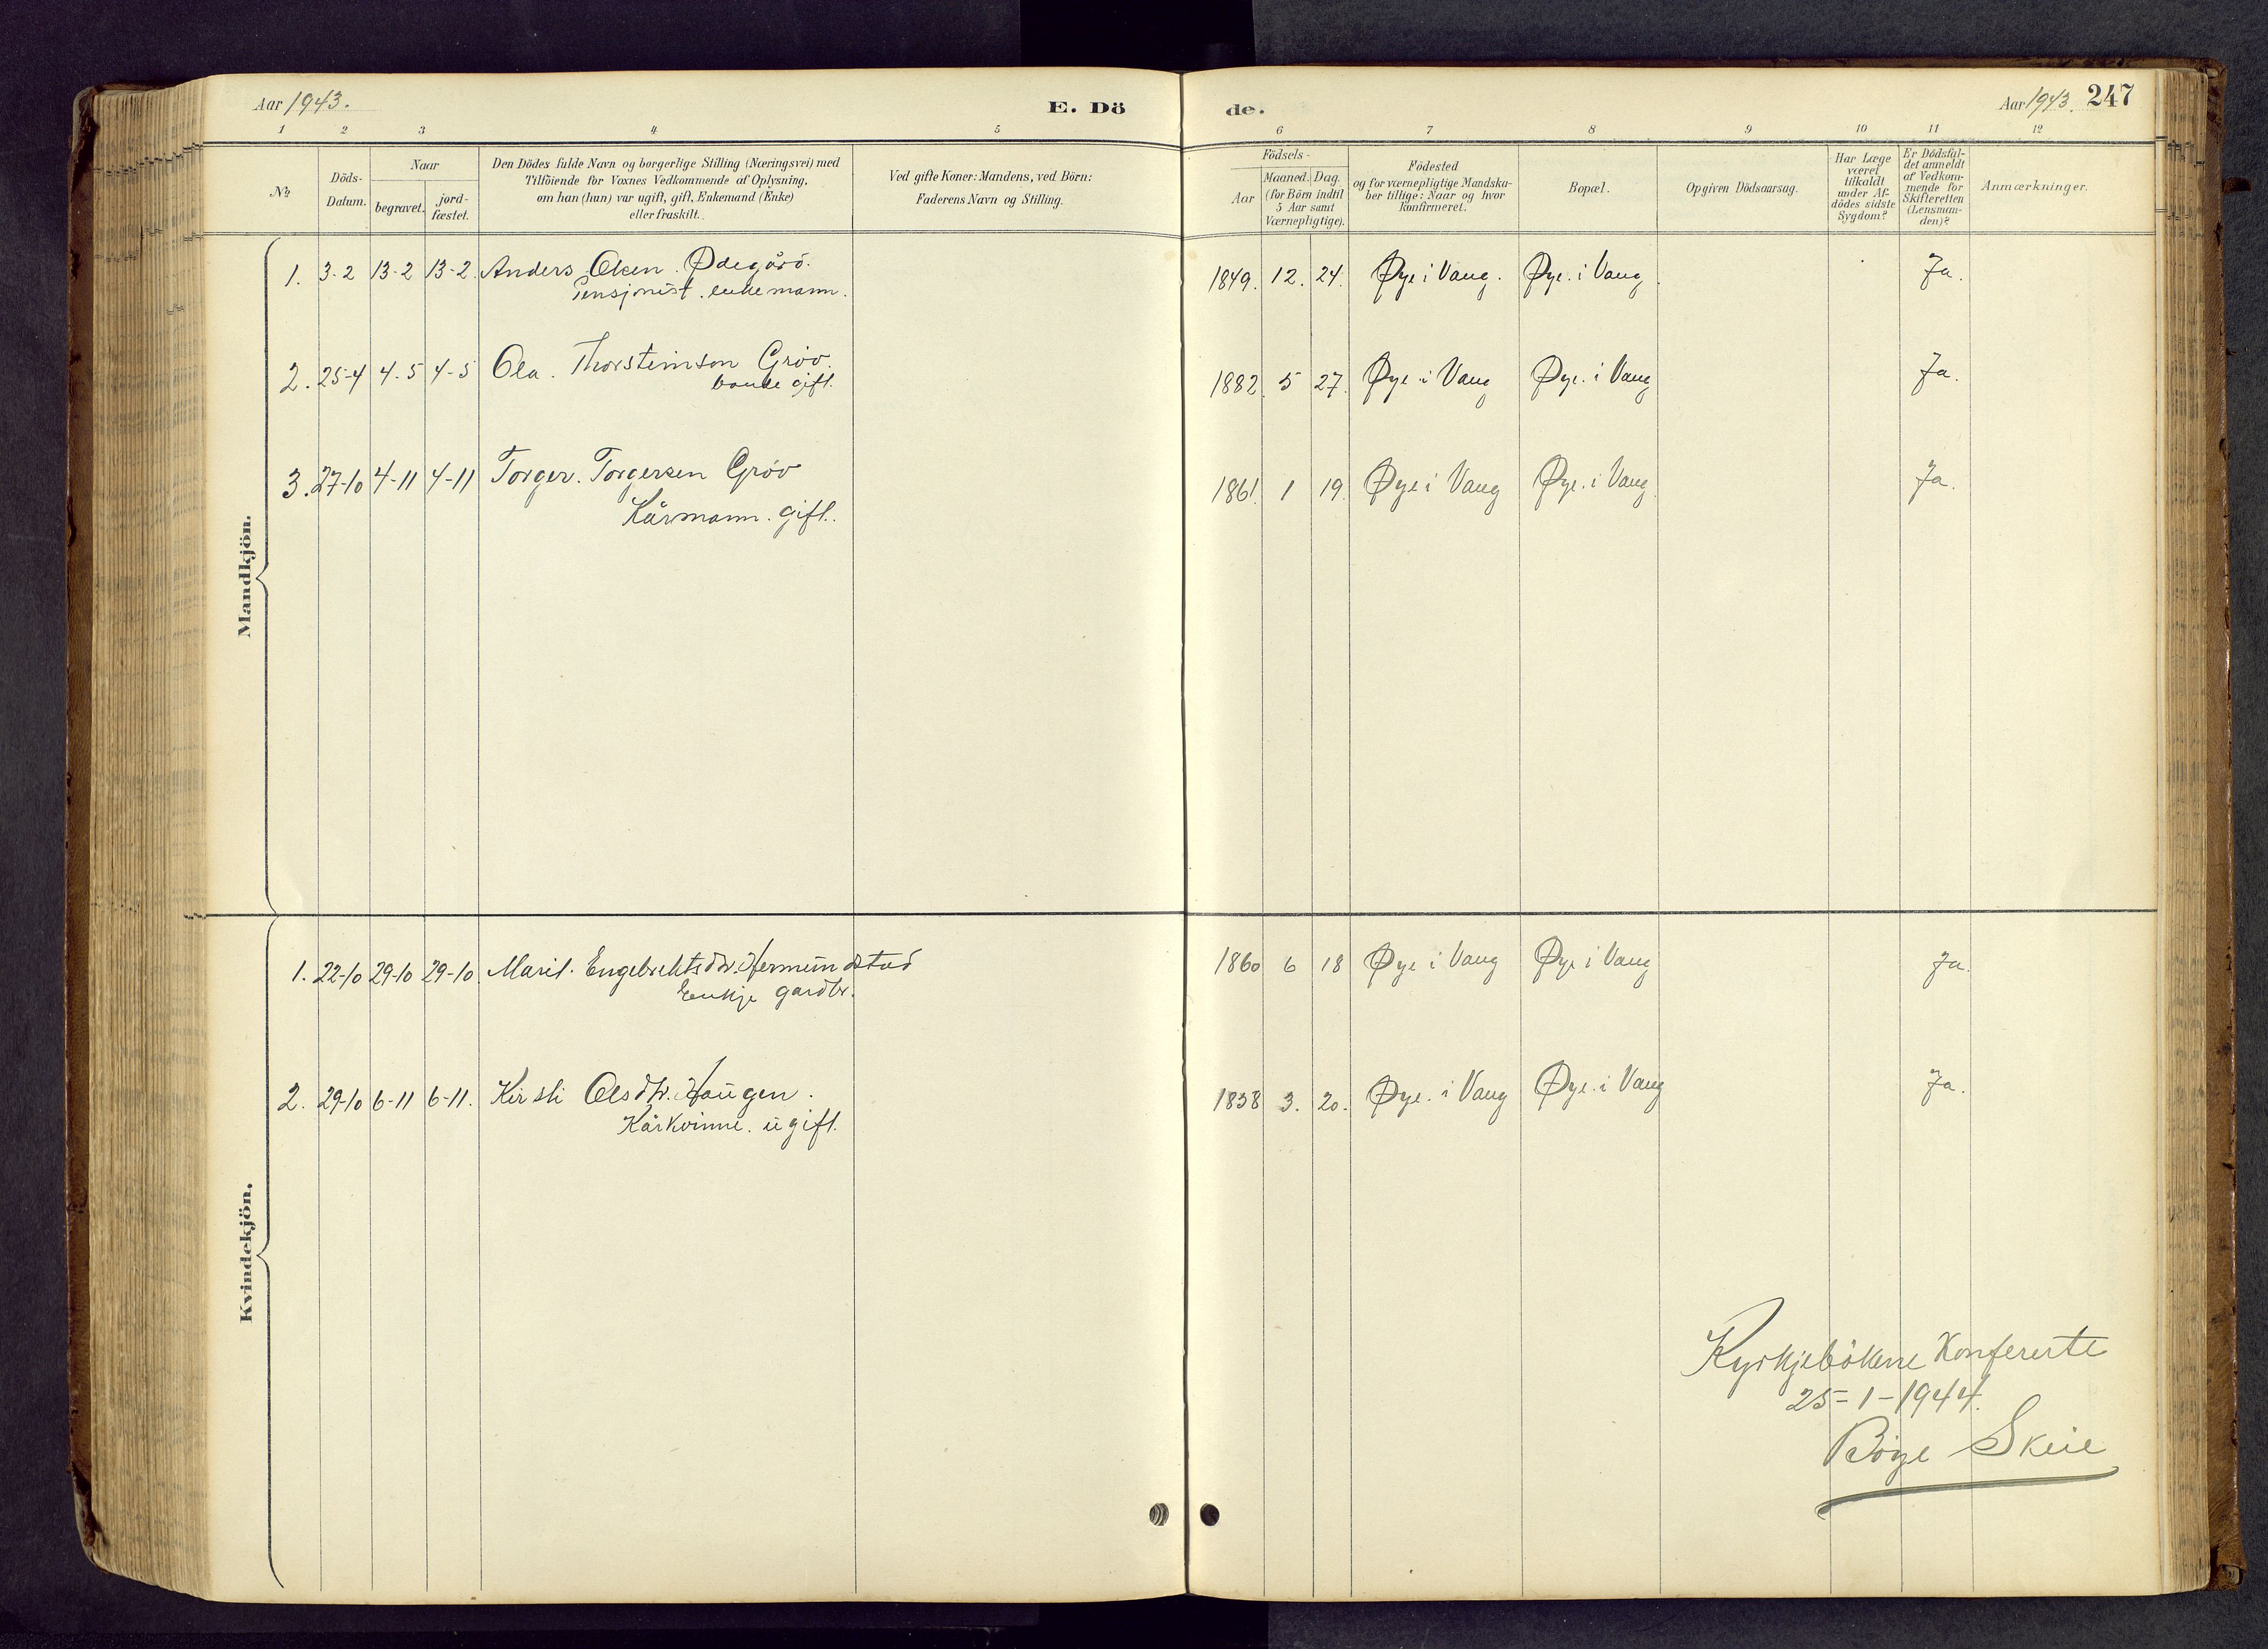 Aar 1943.
E. Döde.
Aar 1943. 247
1 2 3 4 5 6 7 8 9 10 11 12
№
Döds-
Datum.
Naar
begravet.
jord-
fæstet.
Den Dödes fulde Navn og borgerlige Stilling (Næringsvei) med
Tilföiende for Voxnes Vedkommende af Oplysning,
om han (hun) var ugift, gift, Enkemand (Enke)
eller fraskilt.
Ved gifte Koner: Mandens, ved Börn:
Faderens Navn og Stilling.
Födsels-
Aar
Maaned. Dag.
(for Börn indtil
5 Aar samt
Værnepligtige).
Födested
og for værnepligtige Mandska-
ber tillige: Naar og hvor
konfirmeret.
Bopæl.
Opgiven Dödsaarsag.
Har Læge
været
tilkaldt
under Af-
dödes sidste
Sygdom?
Er Dödsfal-
det anmeldt
af Vedkom-
mende for
Skifteretten
(Lensman-
den)?
Anmærkninger.
Mandkjön.
1. 3-2 13-2 13-2 Anders Olsen Ødegård. 1849. 12. 24. Øye i Vang. Øye i Vang. Ja.
Pensjonist. enkemann.
2. 25-4 4-5 4-5 Ola. Thorsteinson Gröv. 1882. 5 27. Øye i Vang Øye i Vang Ja.
bonde gift.
3. 27-10 4-11 4-11 Torger. Torgersen Gröv 1861. 1 19. Øye i Vang Øye i Vang. Ja.
Kårmann. gift.
Kvindekjön.
1. 22-10 29-10 29-10. Marit. Engebrehtsdtr. Hermundstad 1860 6 18 Øye i Vang Øye i Vang Ja.
Enkje gardbr.
2. 29-10 6-11 6-11. Kirsti Olsdtr. Haugen. 1838 3. 20. Øye i Vang Øye i Vang Ja.
Kårkvinne. ugift.
Kyrkjebökene konfererte
25-1-1944.
Börge Skeie